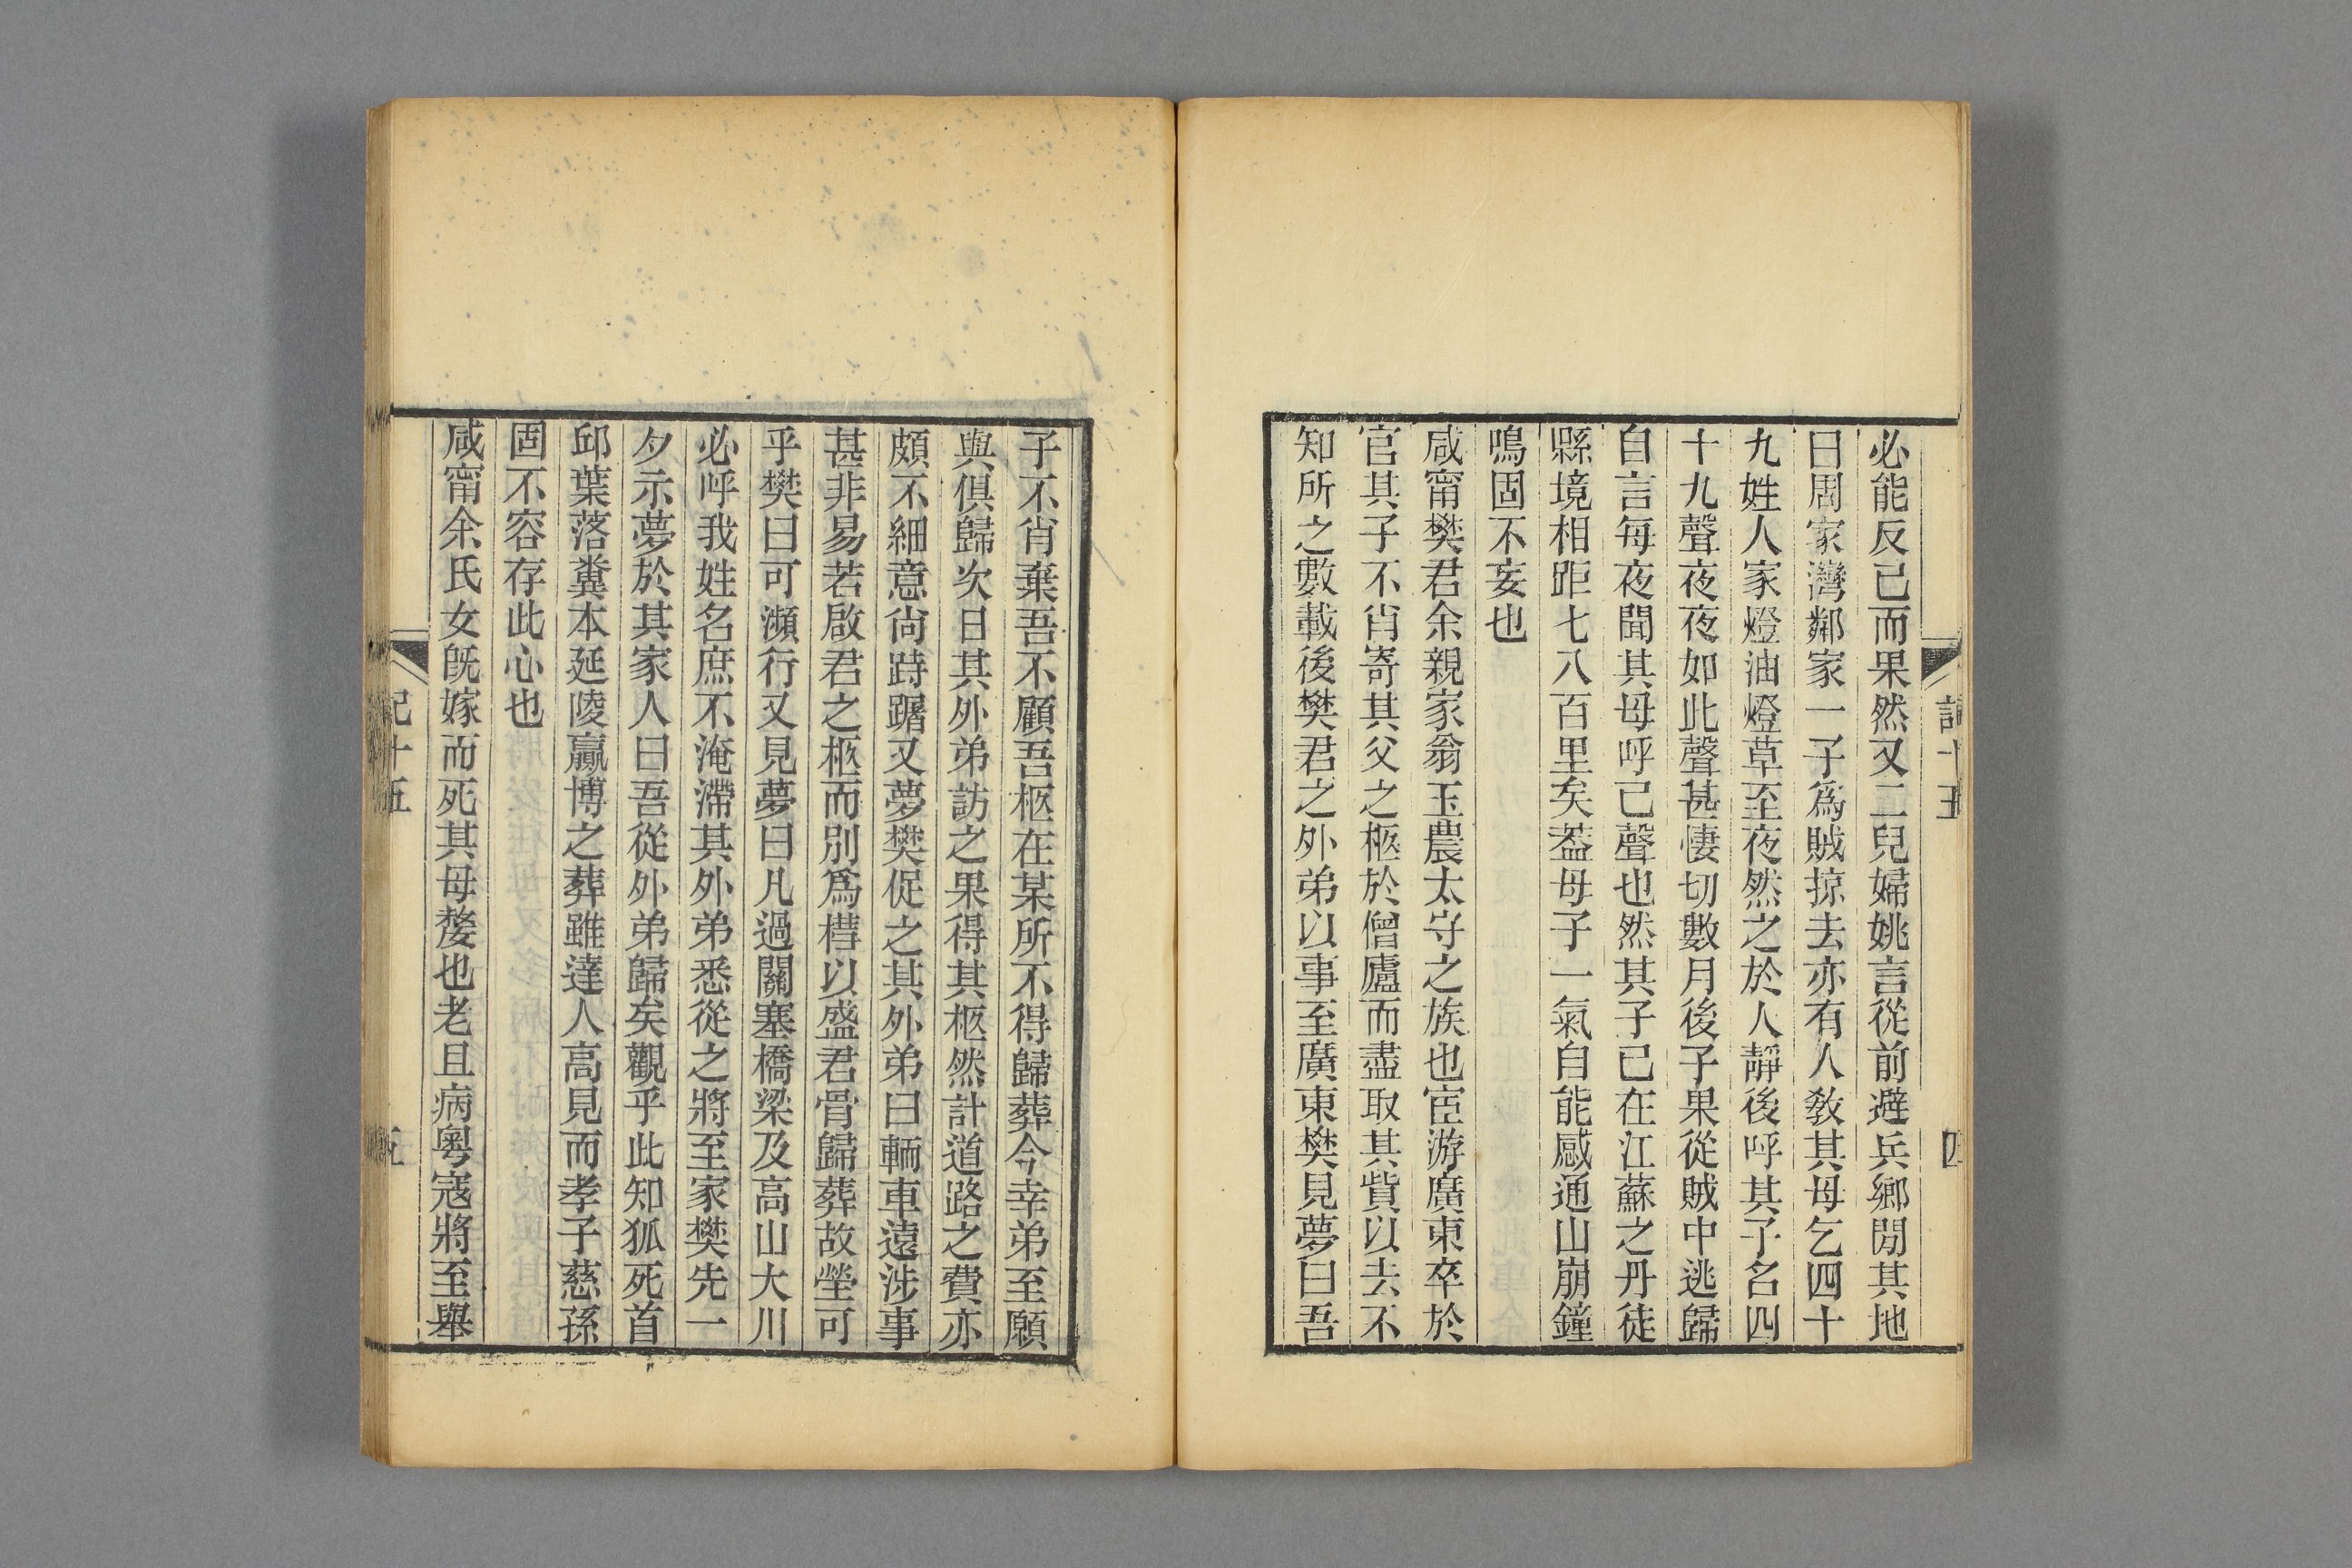 必能反已而果然又二兒婦姚言從前避兵鄉閒其地
曰周家灣鄰家一子爲賊掠去亦有人敎其母乞四十
九姓人家燈油燈草至夜然之於人靜後呼其子名四
十九聲夜夜如此聲甚悽切數月後子果從賊中逃歸
自言每夜聞其母呼己聲也然其子已在江蘇之丹徒
縣境相距七八百里矣葢母子一氣自能感通山崩鐘
鳴固不妄也
咸甯樊君余親家翁玉農太守之族也宦游廣東卒於
官其子不肖寄其父之柩於僧廬而盡取其貲以去不
知所之數載後樊君之外弟以事至廣東樊見夢曰吾
四
子不肖棄吾不顧吾柩在某所不得歸葬今幸弟至願
與俱歸次日其外弟訪之果得其柩然計道路之費亦
頗不細意尙跱躇又夢樊促之其外弟曰輀車遠涉事
甚非易若啟君之柩而別爲槥以盛君骨歸葬故塋可
乎樊曰可瀕行又見夢曰凡過關塞橋梁及高山大川
必呼我姓名庶不淹滯其外弟悉從之將至家樊先一
夕示夢於其家人曰吾從外弟歸矣觀乎此知狐死首
邱葉落糞本延陵嬴博之葬雖達人高見而孝子慈孫
固不容存此心也
咸甯余氏女旣嫁而死其母嫠也老且病粵寇將至舉
記十五
五